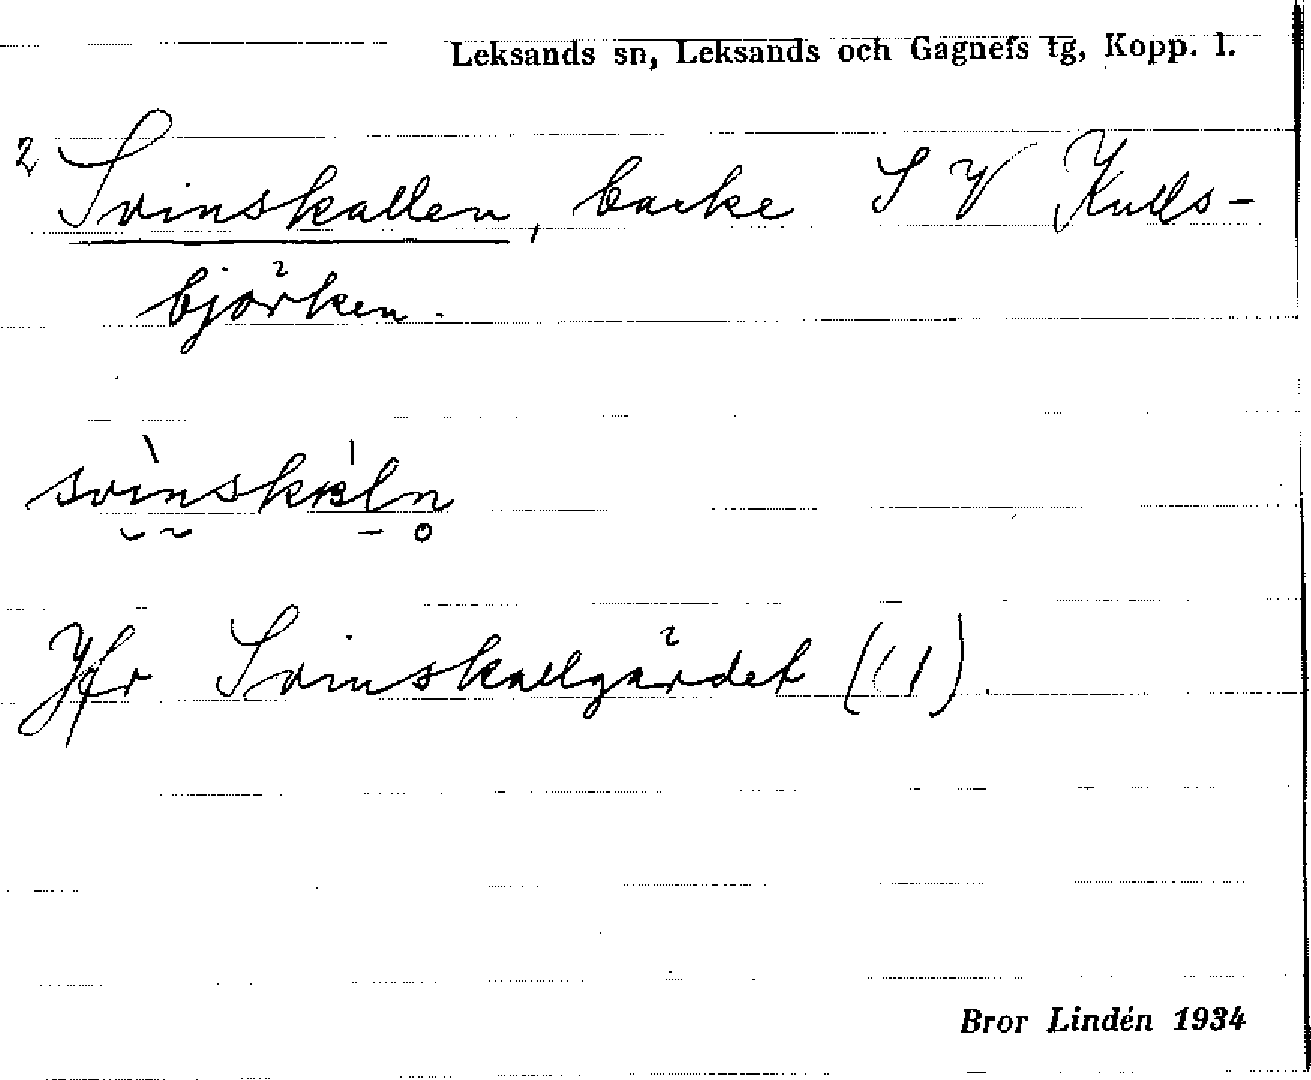 Leksands sn, Leksands och Gagnefs tg, Kopp. l.
2 Svinskallen, backe S V Kulls-
björken.
Jfr Svinskallgärdet (( 1 ).
Bror Lindén 1934